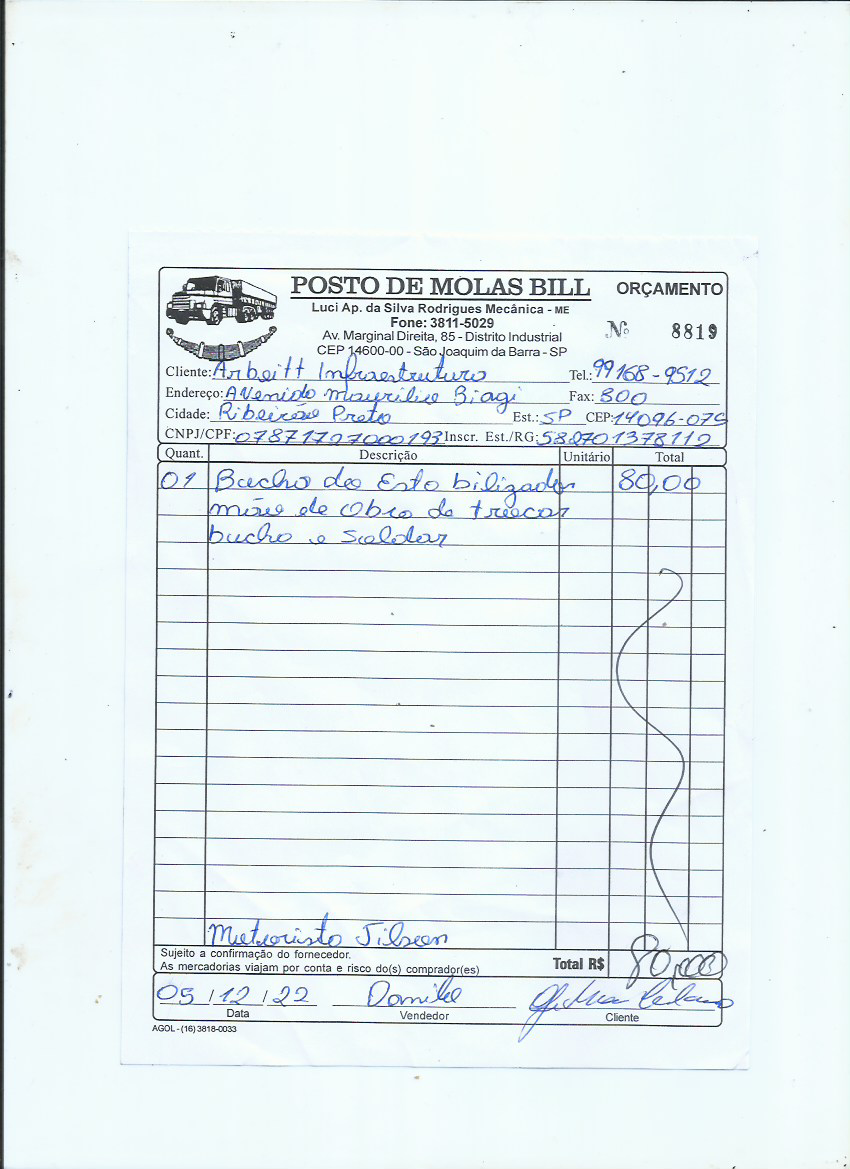 POSTO DE MOLAS BILL ORÇAMENTO
Luci Ap. da Silva Rodrigues Mecânica - ME
Fone: 3811-5029
Nº 8819
Av. Marginal Direita, 85 - Distrito Industrial
CEP 14600-00 - São Joaquim da Barra - SP
Cliente: Arbeitt Infraestrutura Tel.: 99168-9512
Endereço: Avenida Maurilio Biagi Fax: 800
Cidade: Ribeirão Preto Est.: SP CEP: 14096-075
CNPJ/CPF: 07871727000193 Inscr. Est./RG: 582701378112
Quant. Descrição Unitário Total
01 Bucha da Estabilizador 80,00
mão de Obra de trocar
bucha e soldar
Motorista Jilson
Sujeito a confirmação do fornecedor.
As mercadorias viajam por conta e risco do(s) comprador(es)
Total R$ 80,00
05/12/22 Danilo
Data Vendedor Cliente
AGOL - (16) 3818-0033